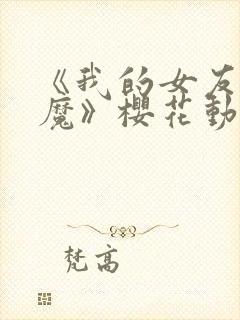 《我的女友
魔》櫻花動
梵高